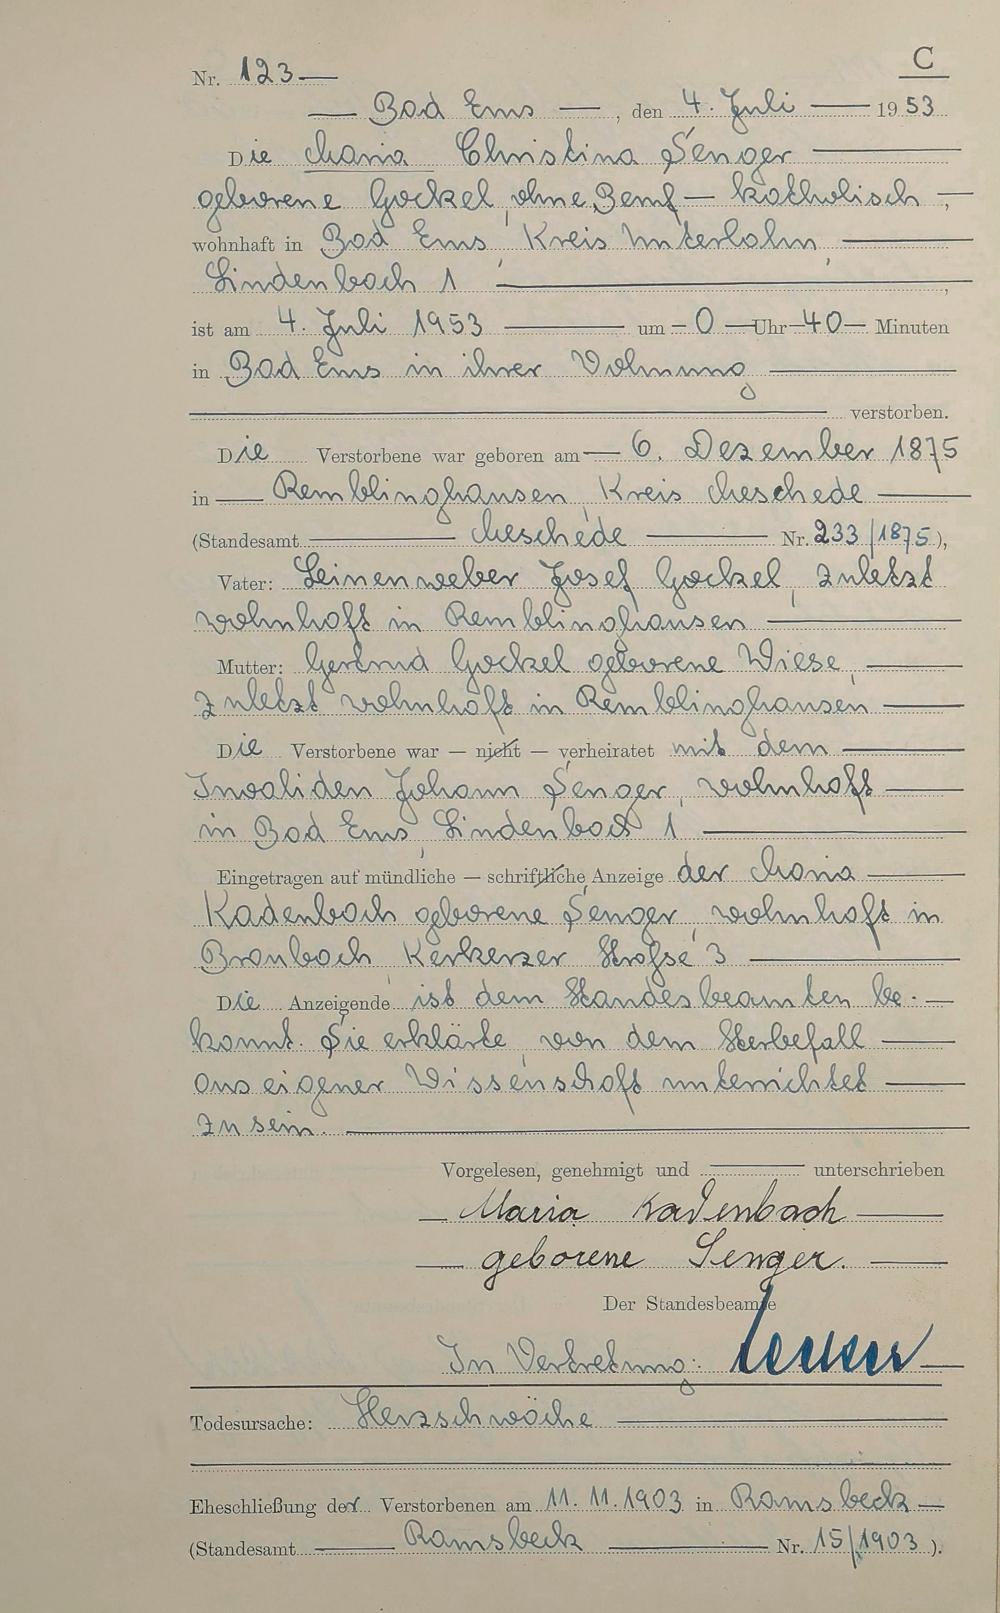 C
Nr. 123
Bad Ems, den 4. Juli 1953
Die Maria Christina Senger
geborene Gockel, ohne Beruf — katholisch,
wohnhaft in Bad Ems, Kreis Unterlahn,
Lindenbach 1,
ist am 4. Juli 1953 um 0 Uhr 40 Minuten
in Bad Ems in ihrer Wohnung
verstorben.
Die Verstorbene war geboren am 6. Dezember 1875
in Remblinghausen, Kreis Meschede
(Standesamt Meschede Nr. 233/1875),
Vater: Leinenweber Josef Gockel, zuletzt
wohnhaft in Remblinghausen
Mutter: Gertrud Gockel geborene Wiese,
zuletzt wohnhaft in Remblinghausen
Die Verstorbene war — nicht — verheiratet mit dem
Invaliden Johann Senger, wohnhaft
in Bad Ems, Lindenbach 1
Eingetragen auf mündliche — schriftliche Anzeige der Maria
Kadenbach geborene Senger, wohnhaft in
Braubach Kerkerzer Straße 3
Die Anzeigende ist dem Standesbeamten be-
kannt. Sie erklärte, von dem Sterbefall
aus eigener Wissenschaft unterrichtet
zu sein.
Vorgelesen, genehmigt und unterschrieben
Maria Kadenbach
geborene Senger.
Der Standesbeamte
In Vertretung:
Todesursache: Herzschwäche
Eheschließung der Verstorbenen am 11.11.1903 in Ramsbeck
(Standesamt Ramsbeck Nr. 15/1903).